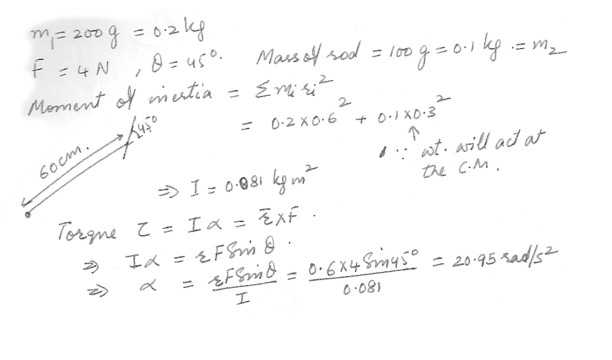 m₁ = 200 g = 0.2 kg
F = 4 N , θ = 45°. Mass of rod = 100 g = 0.1 kg = m₂
Moment of inertia = Σ mᵢ rᵢ²
= 0.2 × 0.6² + 0.1 × 0.3²
60cm. 45°
↑
∵ wt. will act at
the C.M.
⇒ I = 0.081 kg m²
Torque τ = Iα = r̄ × F .
⇒ Iα = r F Sin θ .
⇒ α = rFSinθ / I = 0.6×4 Sin45° / 0.081 = 20.95 rad/s²